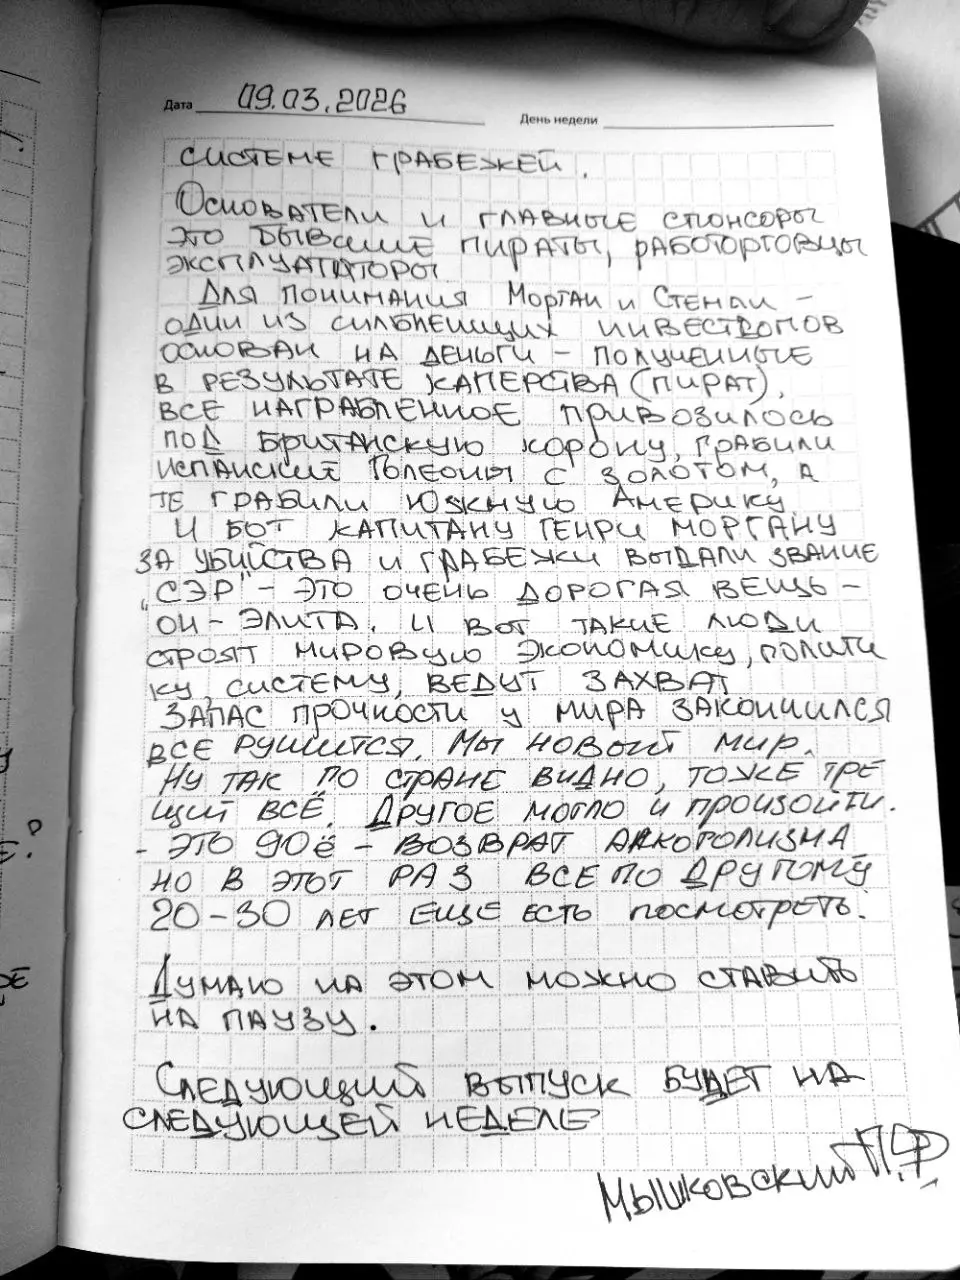 Дата 09.03.2026 День недели
СИСТЕМЕ ГРАБЕЖЕЙ.
ОСНОВАТЕЛИ И ГЛАВНЫЕ СПОНСОРЫ
ЭТО БЫВШИЕ ПИРАТЫ, РАБОТОРГОВЦЫ
ЭКСПЛУАТАТОРЫ
ДЛЯ ПОНИМАНИЯ МОРГАН И СТЕНЛИ –
ОДИН ИЗ СИЛЬНЕЙЩИХ ИНВЕСТДОМОВ
ОСНОВАН НА ДЕНЬГИ – ПОЛУЧЕННЫЕ
В РЕЗУЛЬТАТЕ КАПЕРСТВА (ПИРАТ).
ВСЕ НАГРАБЛЕННОЕ ПРИВОЗИЛОСЬ
ПОД БРИТАНСКУЮ КОРОНУ, ГРАБИЛИ
ИСПАНСКИЕ ГОЛЕОНЫ С ЗОЛОТОМ, А
ТЕ ГРАБИЛИ ЮЖНУЮ АМЕРИКУ.
И ВОТ КАПИТАНУ ГЕНРИ МОРГАНУ
ЗА УБИЙСТВА И ГРАБЕЖИ ВЫДАЛИ ЗВАНИЕ
„СЭР" – ЭТО ОЧЕНЬ ДОРОГАЯ ВЕЩЬ –
ОН – ЭЛИТА. И ВОТ ТАКИЕ ЛЮДИ
СТРОЯТ МИРОВУЮ ЭКОНОМИКУ, ПОЛИТИ
КУ, СИСТЕМУ, ВЕДУТ ЗАХВАТ
ЗАПАС ПРОЧНОСТИ У МИРА ЗАКОНЧИЛСЯ
ВСЕ РУШИТСЯ. МЫ НОВЫЙ МИР.
НУ ТАК ПО СТРАНЕ ВИДНО, ТОЖЕ ТРЕ
ЩИТ ВСЁ. ДРУГОЕ МОГЛО И ПРОИЗОЙТИ.
- ЭТО 90Ё – ВОЗВРАТ АЛКОГОЛИЗМА
НО В ЭТОТ РАЗ ВСЕ ПО ДРУГОМУ
20-30 ЛЕТ ЕЩЕ ЕСТЬ ПОСМОТРЕТЬ.
ДУМАЮ НА ЭТОМ МОЖНО СТАВИТЬ
НА ПАУЗУ.
СЛЕДУЮЩИЙ ВЫПУСК БУДЕТ НА
СЛЕДУЮЩЕЙ НЕДЕЛЕ
МЫШКОВСКИЙ П.Ф.